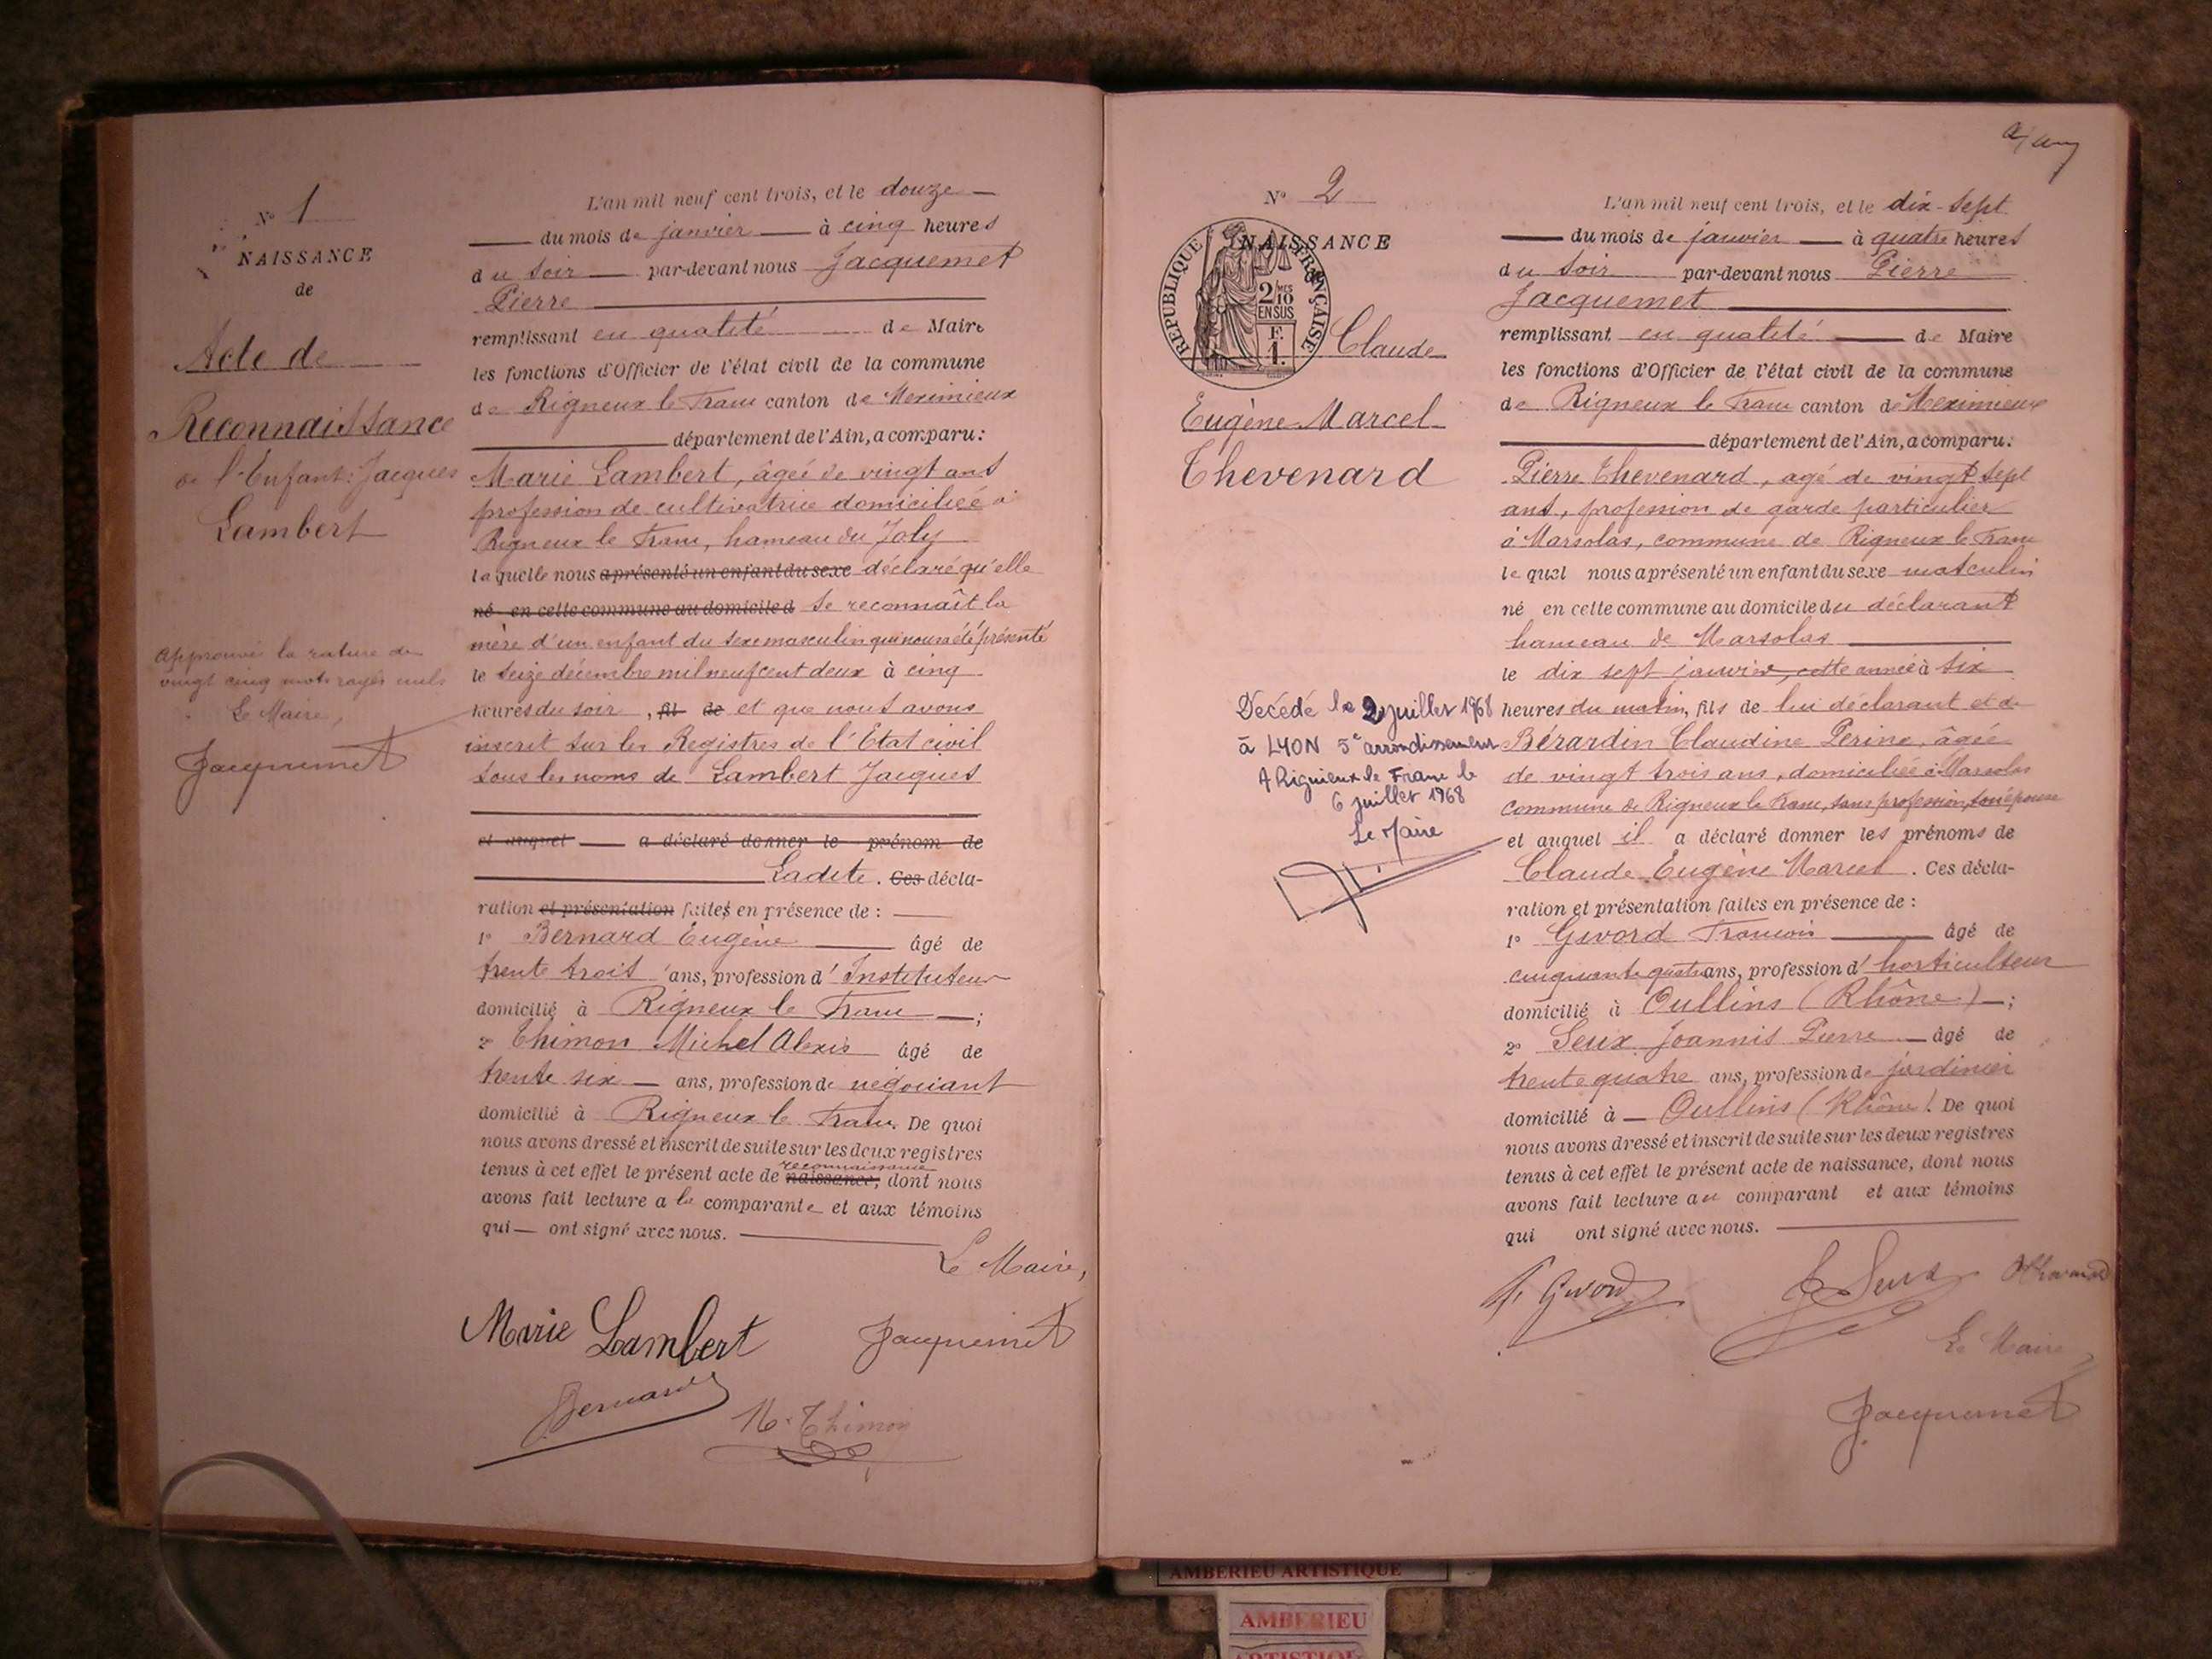 N° 1
NAISSANCE
de
Acte de
Reconnaissance
de l'Enfant: Jacques
Lambert
Approuvé la rature de
vingt cinq mots rayés nuls
Le Maire,
Jacquemet
L'an mil neuf cent trois, et le douze
du mois de janvier à cinq heures
du soir par-devant nous Jacquemet
Pierre
remplissant en qualité de Maire
les fonctions d'Officier de l'état civil de la commune
de Rigneux le Franc canton de Meximieux
département de l'Ain, a comparu:
Marie Lambert, âgée de vingt ans
profession de cultivatrice domiciliée à
Rigneux le Franc, hameau du Joly
laquelle nous a présenté un enfant du sexe déclaré qu'elle
né en cette commune au domicile d se reconnaît la
mère d'un enfant du sexe masculin qui nous a été présenté
le seize décembre mil neuf cent deux à cinq
heures du soir, fil de et que nous avons
inscrit sur les Registres de l'Etat civil
sous les noms de Lambert Jacques
et auquel a déclaré donner le prénom de
Ladite. Ces décla-
ration et présentation faites en présence de :
1° Bernard Eugène âgé de
trente trois ans, profession d'Instituteur
domicilié à Rigneux le Franc ;
2° Thimon Michel Alexis âgé de
trente six ans, profession de négociant
domicilié à Rigneux le Franc. De quoi
nous avons dressé et inscrit de suite sur les deux registres
reconnaissance
tenus à cet effet le présent acte de naissance, dont nous
avons fait lecture a la comparante et aux témoins
qui ont signé avec nous.
Le Maire,
Marie Lambert Jacquemet
Bernard
M. Thimon
N° 2
NAISSANCE
REPUBLIQUE FRANÇAISE
2/10 MES
EN SUS
F.
1.
Claude
Eugène Marcel
Thevenard
Décédé le 2 juillet 1968
à LYON 5e arrondissement
A Rignieux le Franc le
6 juillet 1968
Le Maire
L'an mil neuf cent trois, et le dix-sept
du mois de janvier à quatre heures
du soir par-devant nous Pierre
Jacquemet
remplissant en qualité de Maire
les fonctions d'Officier de l'état civil de la commune
de Rigneux le Franc canton de Meximieux
département de l'Ain, a comparu:
Pierre Thevenard, agé de vingt sept
ans, profession de garde particulier
à Marsolas, commune de Rigneux le Franc
lequel nous a présenté un enfant du sexe masculin
né en cette commune au domicile du déclarant
hameau de Marsolas
le dix sept janvier, cette année à six
heures du matin, fils de lui déclarant et de
Bérardin Claudine Perine, âgée
de vingt trois ans, domiciliée à Marsolas
commune de Rigneux le Franc, sans profession, son épouse
et auquel il a déclaré donner les prénoms de
Claude Eugène Marcel. Ces décla-
ration et présentation faites en présence de :
1° Givord Francois âgé de
cinquante quatre ans, profession d'horticulteur
domicilié à Oullins (Rhône) ;
2° Seux Joannis Pierre âgé de
trente quatre ans, profession de jardinier
domicilié à Oullins (Rhône). De quoi
nous avons dressé et inscrit de suite sur les deux registres
tenus à cet effet le présent acte de naissance, dont nous
avons fait lecture au comparant et aux témoins
qui ont signé avec nous.
F. Givord J. Seux Thevenard
Le Maire
Jacquemet
AMBERIEU ARTISTIQUE
AMBERIEU
ARTISTIQUE